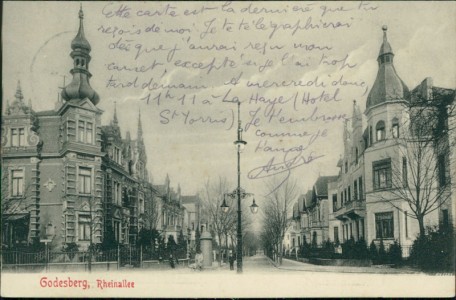 Cette carte est la dernière que tu
reçois de moi. Je te télégraphierai
dès que j'aurai reçu mon
carnet, excepté si je l'ai trop
tard demain. A mercredi donc
11h11 à La Haye (Hotel
St Yorris). Je t'embrasse
comme je
t'aime
André
Godesberg, Rheinallee